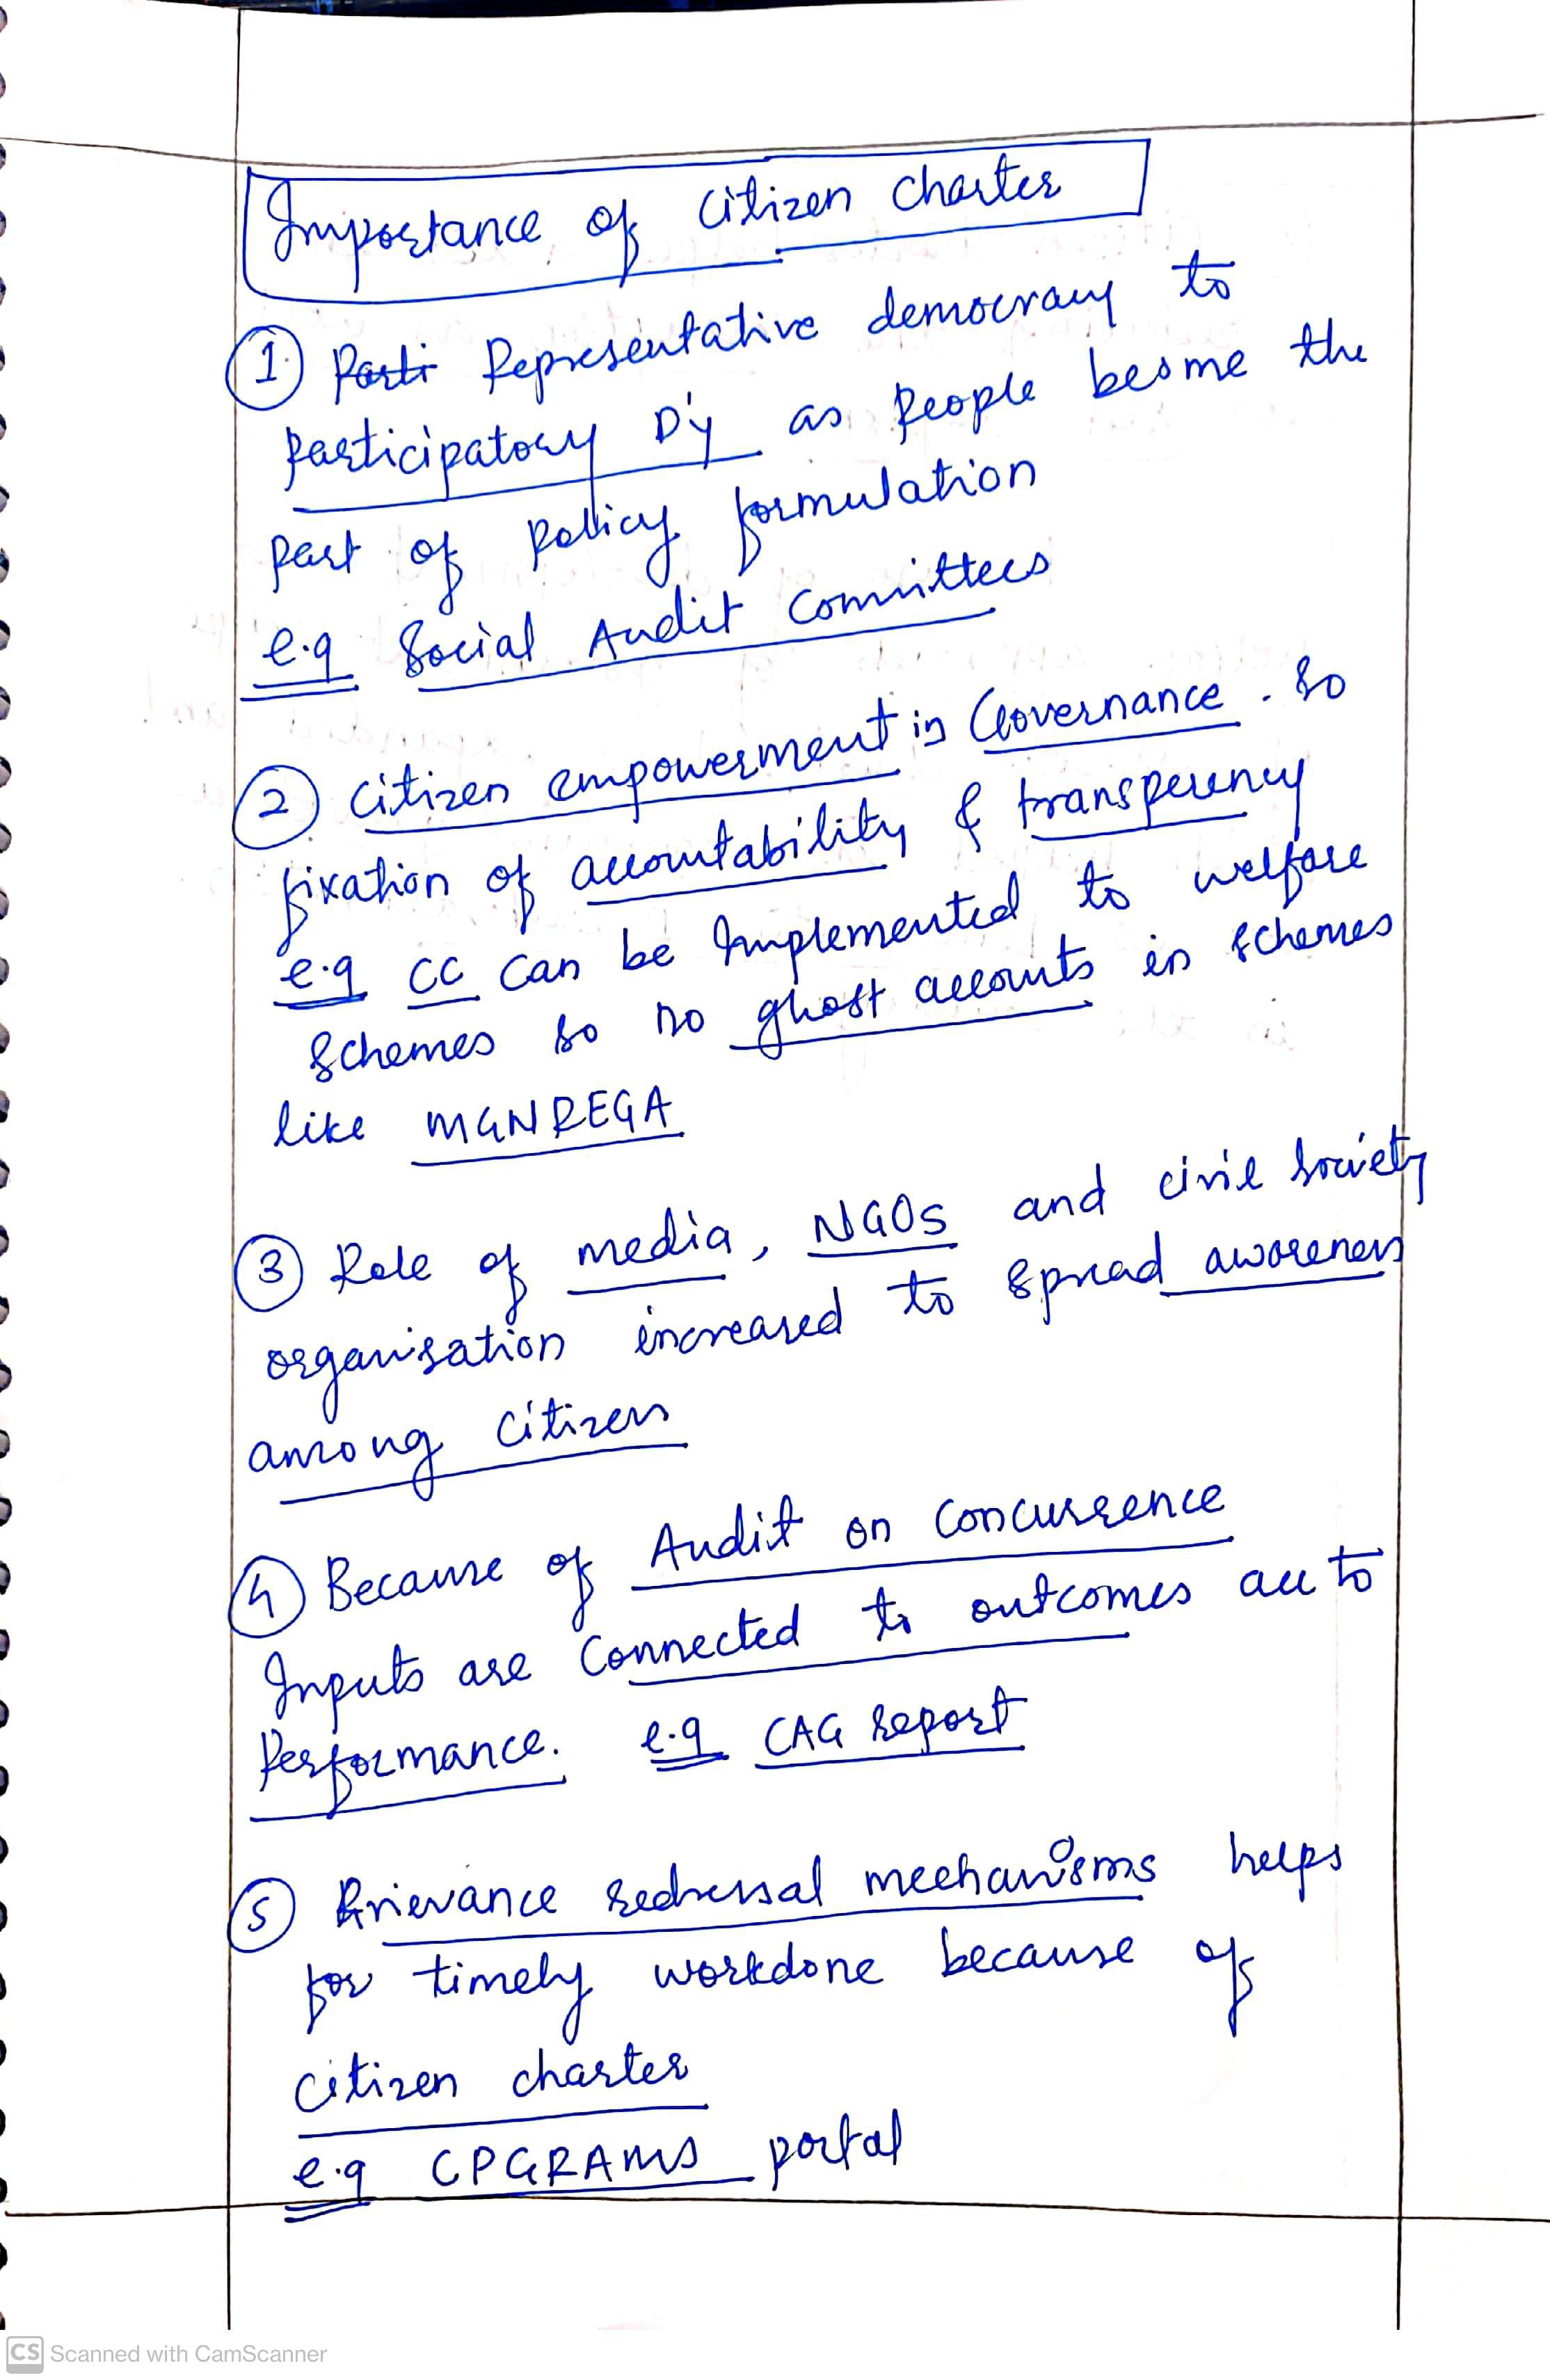 Importance of Citizen Charter
① Parti Representative democracy to
participatory D'y as people become the
part of policy formulation
e.g Social Audit Committees
② Citizen empowerment in Governance. So
fixation of accountability & transperency
e.g CC can be Implemented to welfare
Schemes so no ghost accounts in schemes
like MGNREGA
③ Role of media, NGOs and civil society
organisation increased to spread awareness
among citizens
④ Because of Audit on Concurrence
Inputs are Connected to outcomes acc to
Performance. e.g CAG report
⑤ Grievance redressal mechanisms helps
for timely workdone because of
citizen charter
e.g CPGRAMS portal
CS Scanned with CamScanner